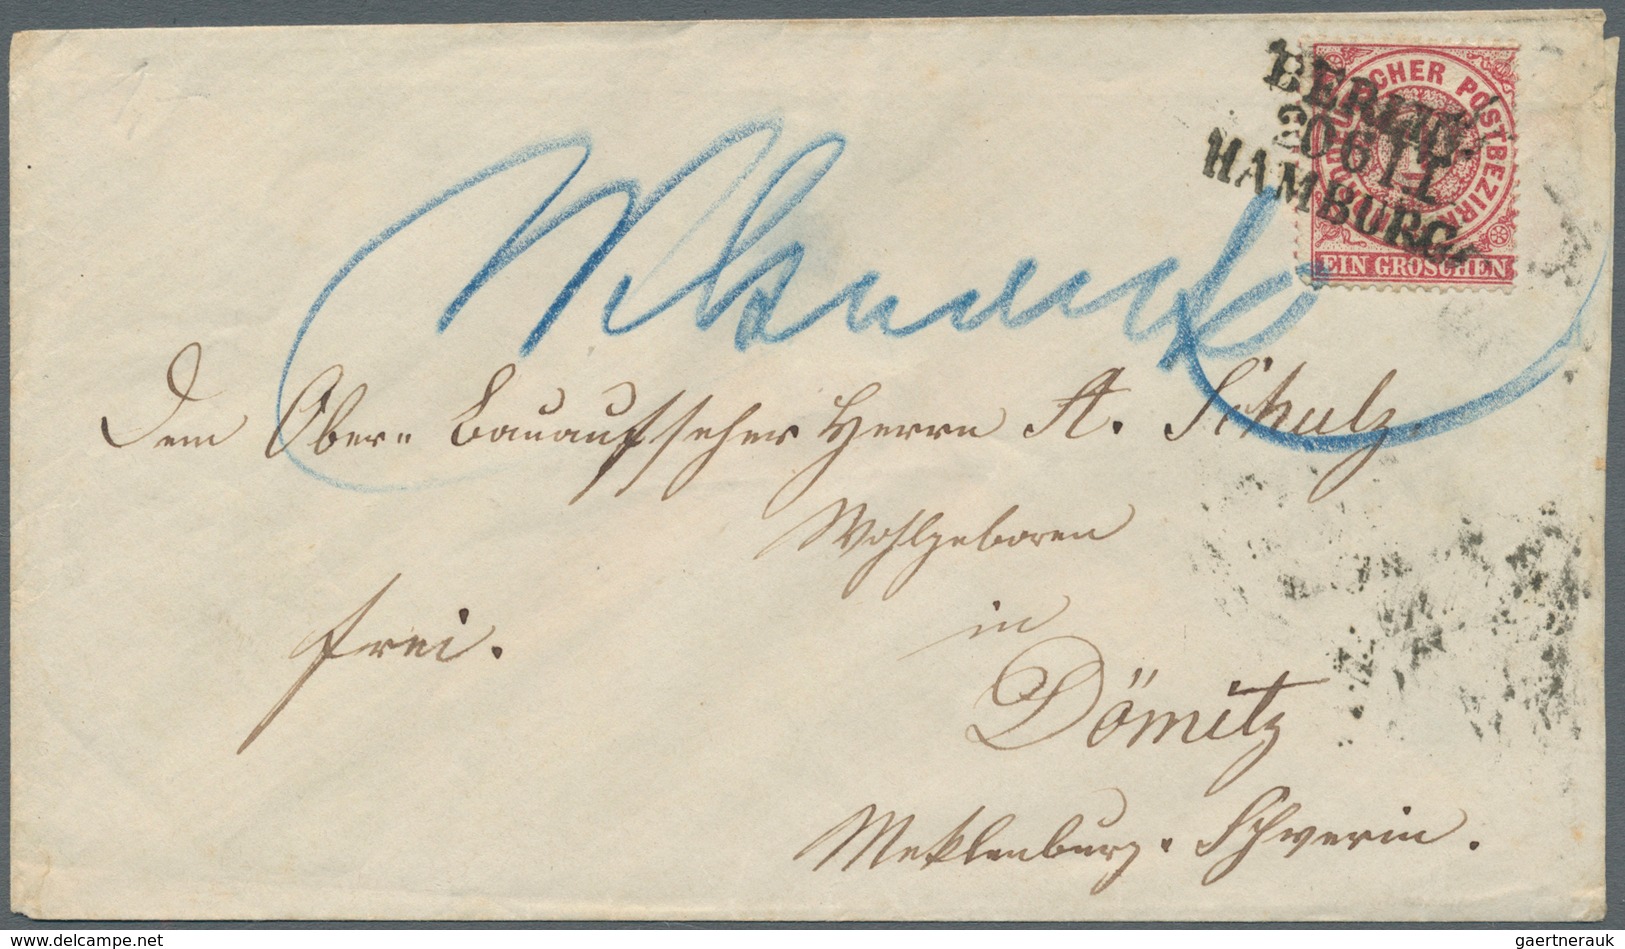 BERLIN.
HAMBURG.
NORDDEUTSCHER POSTBEZIRK
EIN GROSCHEN
Dem Ober= Bauaufseher Herrn A. Schulz.
Wohlgeboren
frei.
in
Dömitz
Meklenburg. Schwerin.
gaertnerauk